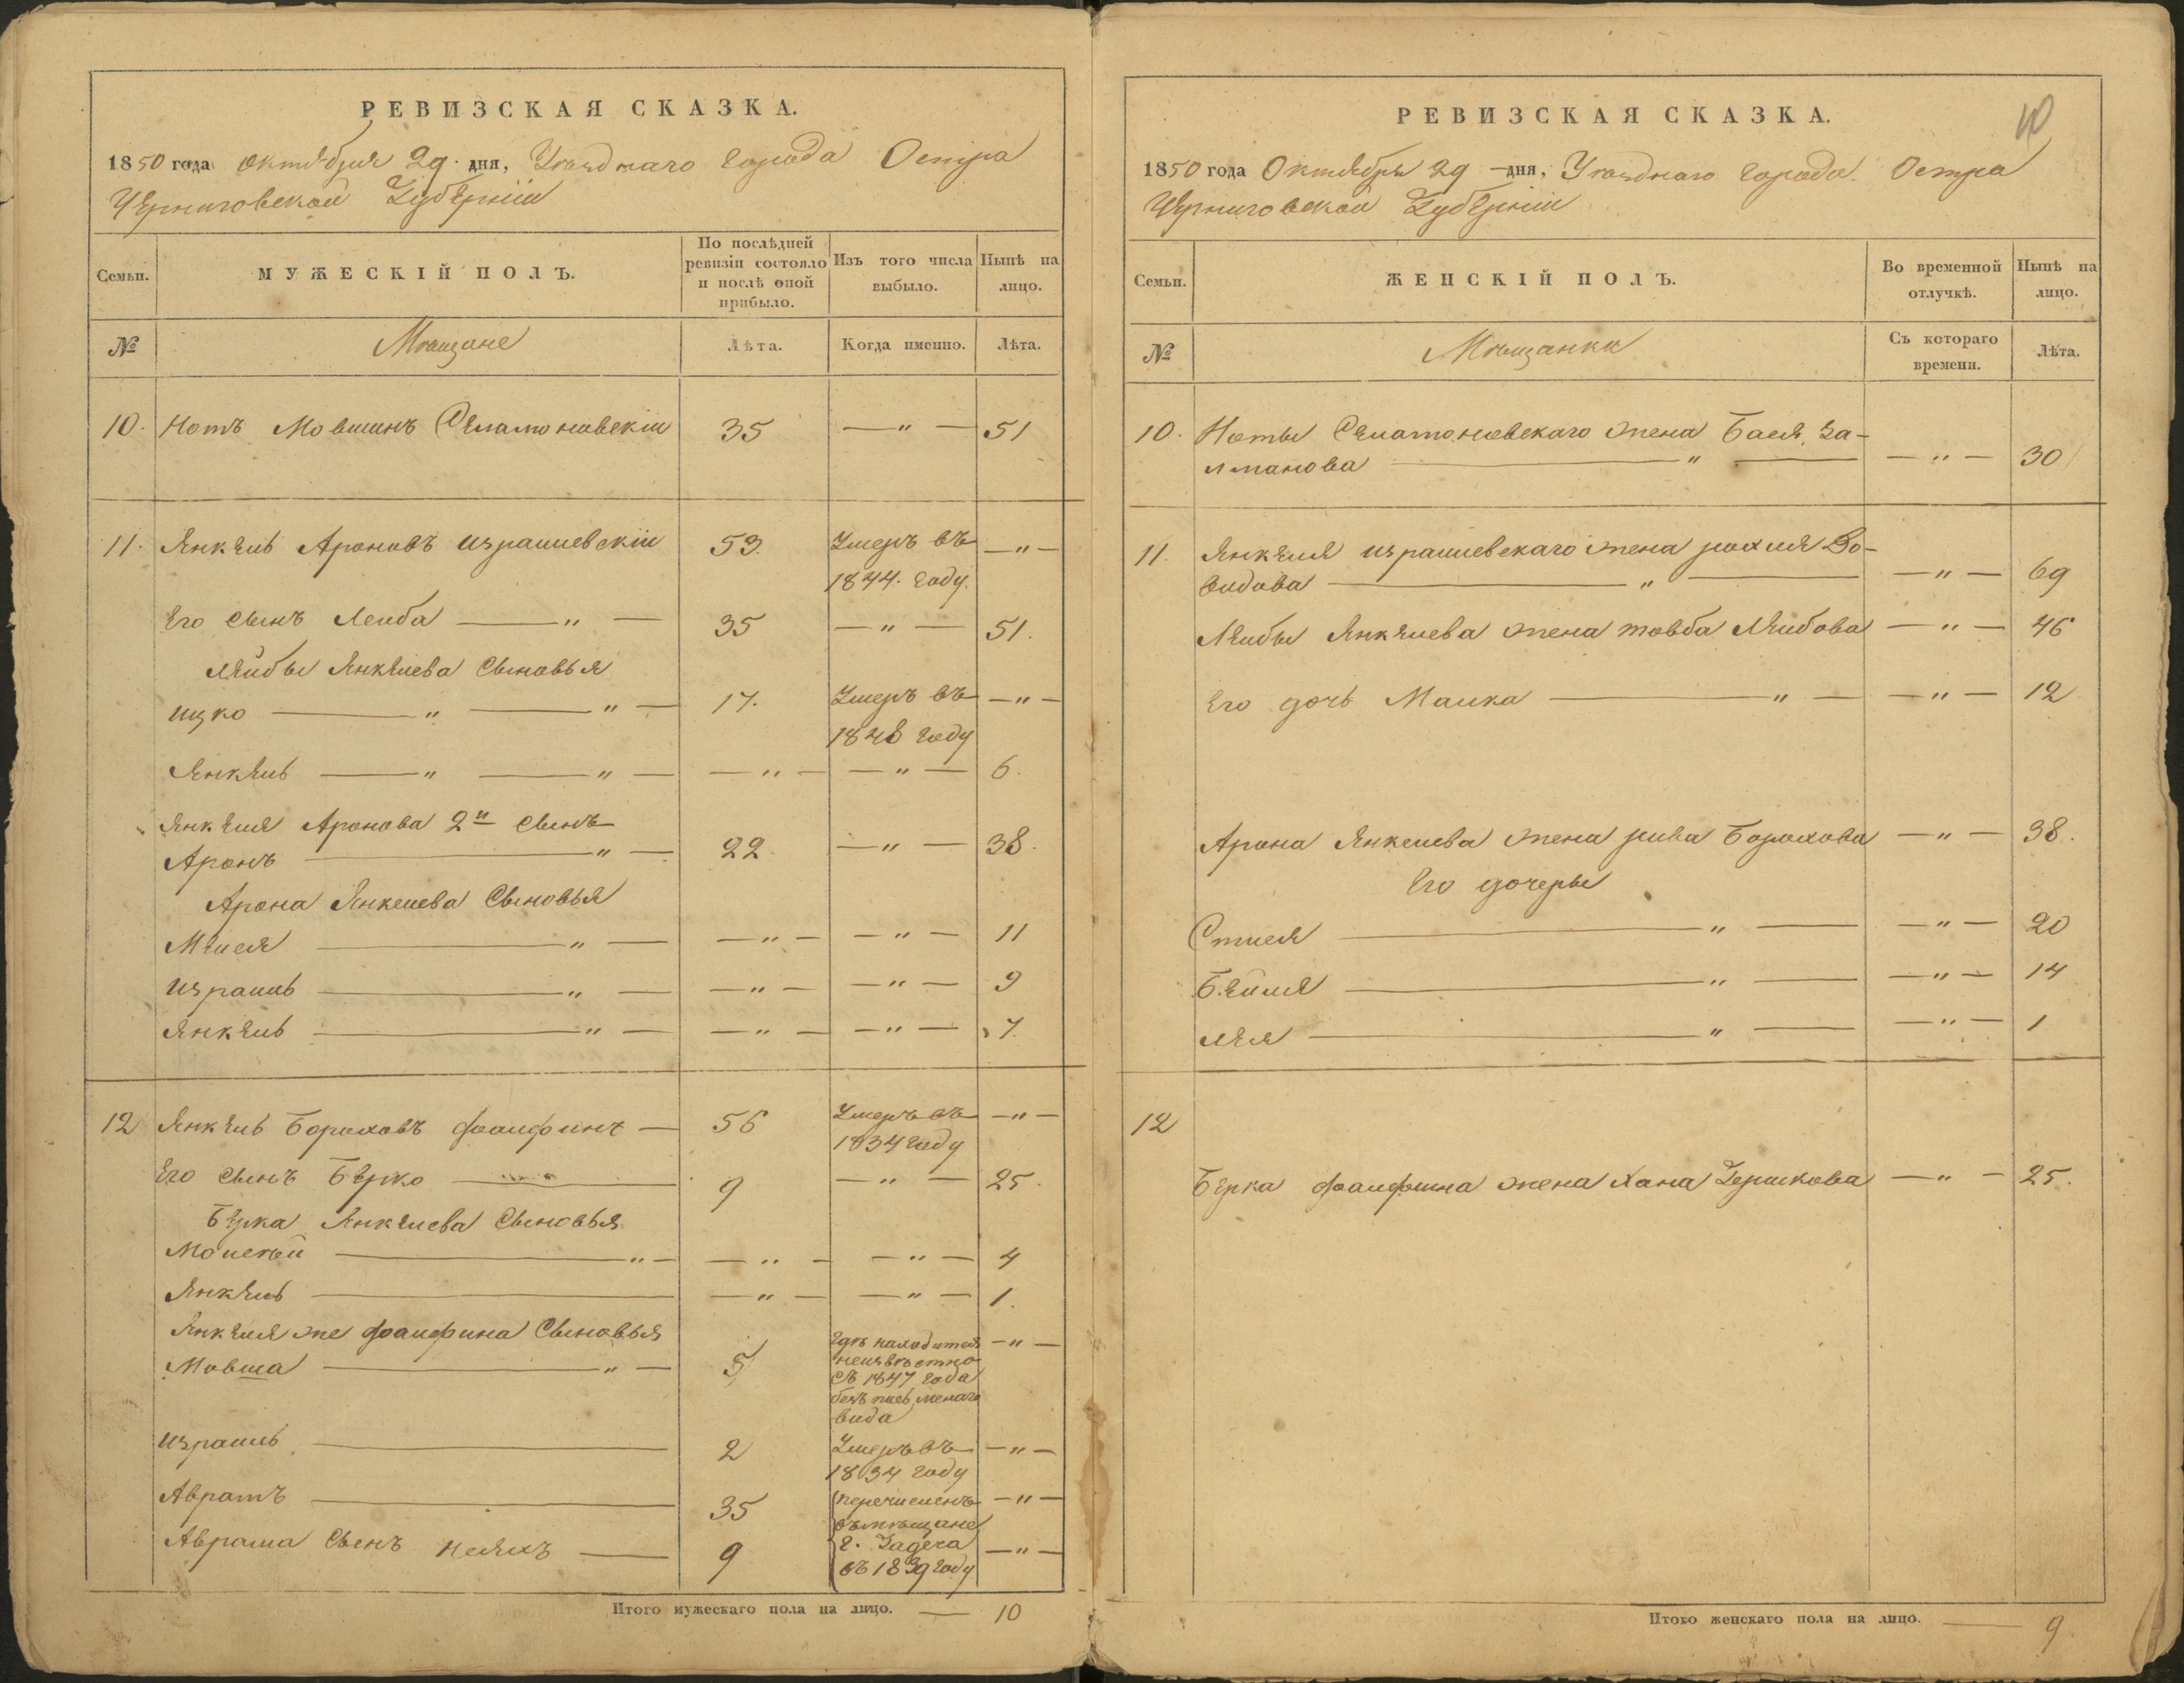 РЕВИЗСКАЯ СКАЗКА.
1850 года Октября 29 дня, Уѣзднаго города Остра
Черниговской Губернiи
Семьи.
МУЖЕСКIЙ ПОЛЪ.
По послѣдней ревизiи состояло и послѣ оной прибыло.
Изъ того числа выбыло.
Нынѣ на лицо.
№
Мѣщане
Лѣта.
Когда именно.
Лѣта.
10. Нотъ Мовшинъ 35 — " — 51
11. Янкель Ароновъ Израилевскiй 53. Умеръ въ — " —
1844. году.
Его сынъ Лейба — " — 35 — " — 51.
Лейбы Янкелева сыновья
Ицко — " — " — 17. Умеръ въ — " —
1848 году
Янкель — " — " — — " — — " — 6.
Янкеля Аронова 2й сынъ
Аронъ — " — 22 — " — 38.
Арона Янкелева сыновья
— " — — " — — " — 11
Израиль — " — — " — — " — 9
Янкель — " — — " — — " — 7.
12 Янкель Бороховъ Файфинъ — 56 Умеръ въ — " —
1834 году
Его сынъ Берко — 9 — " — 25.
Берка Янкелева сыновья
Моисей — " — — " — — " — 4
Янкель — — " — — " — 1.
Янкеля же Файфина сыновья
Мовша — " — 5 Гдѣ находится — " —
неизвѣстно
съ 1847 года
безъ письменаго
вида
Израиль — 2 Умеръ въ — " —
1834 году
Аврамъ — 35 перечисленъ — " —
въ мѣщане
Аврама сынъ — 9 г. Гадеча — " —
въ 1839 году
Итого мужескаго пола на лицо. — 10
10
РЕВИЗСКАЯ СКАЗКА.
1850 года Октября 29 — дня, Уѣзднаго города Остра
Черниговской Губернiи
Семьи.
ЖЕНСКIЙ ПОЛЪ.
Во временной отлучкѣ.
Нынѣ на лицо.
№
Мѣщанки
Съ котораго времени.
Лѣта.
10. Ноты жена Бася За-
лманова — " — — " — 30
11. Янкеля Израилевскаго жена Рохля До-
видова — " — — " — 69
Лейбы Янкелева жена Товба Лейбова — " — 46
Его дочь Малка — " — — " — 12
Арона Янкелева жена Рива Борохова — " — 38.
Его дочеры
— " — — " — 20
Бейля — " — — " — 14
Лея — " — — " — 1
12
Берка Файфина жена Хана Гершкова — " — 25.
Итого женскаго пола на лицо. — 9